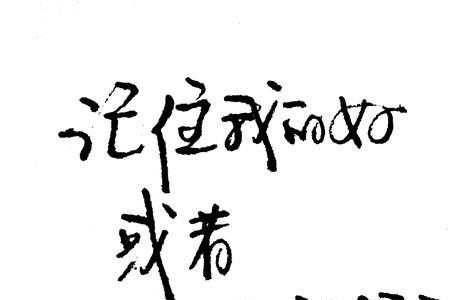 记住我的好
或者